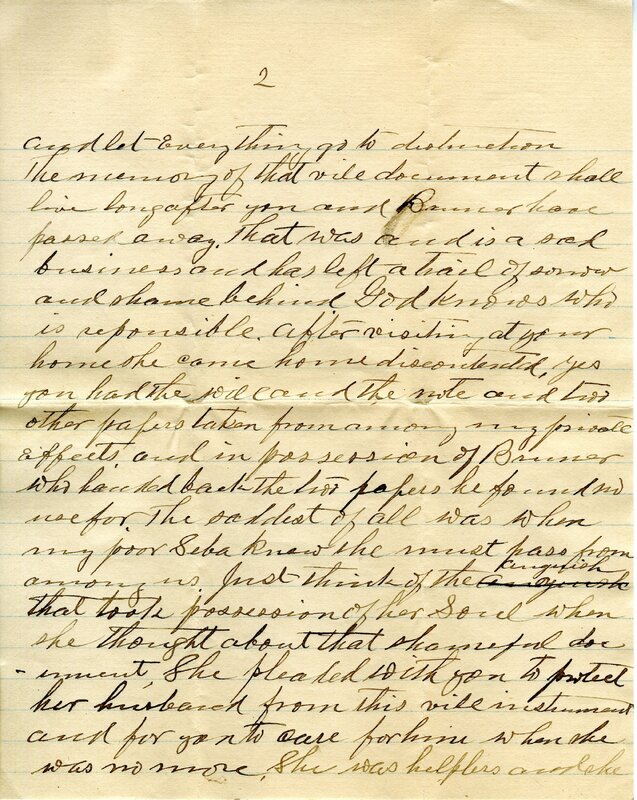 2
and let Everything go to distruction
The memory of that vile document shall
live long after you and Bruner have
passed away. That was and is a sad
business and has left a trail of sorrow
and shame behind, God knows who
is reponsible. After visiting at your
home she came home discontented, yes
you had the will and the note and two
other papers taken from among my private
affects and in possession of Bruner
who handed back the two papers he found no
use for. The saddest of all was when
my poor Seba knew she must pass from
among us, Just think of the anguish
that took possession of her Soul when
she thought about that shameful doc
-ument, She pleaded with you to protect
her husband from this vile instrument
and for you to care for hime when she
was no more. She was helpless and she